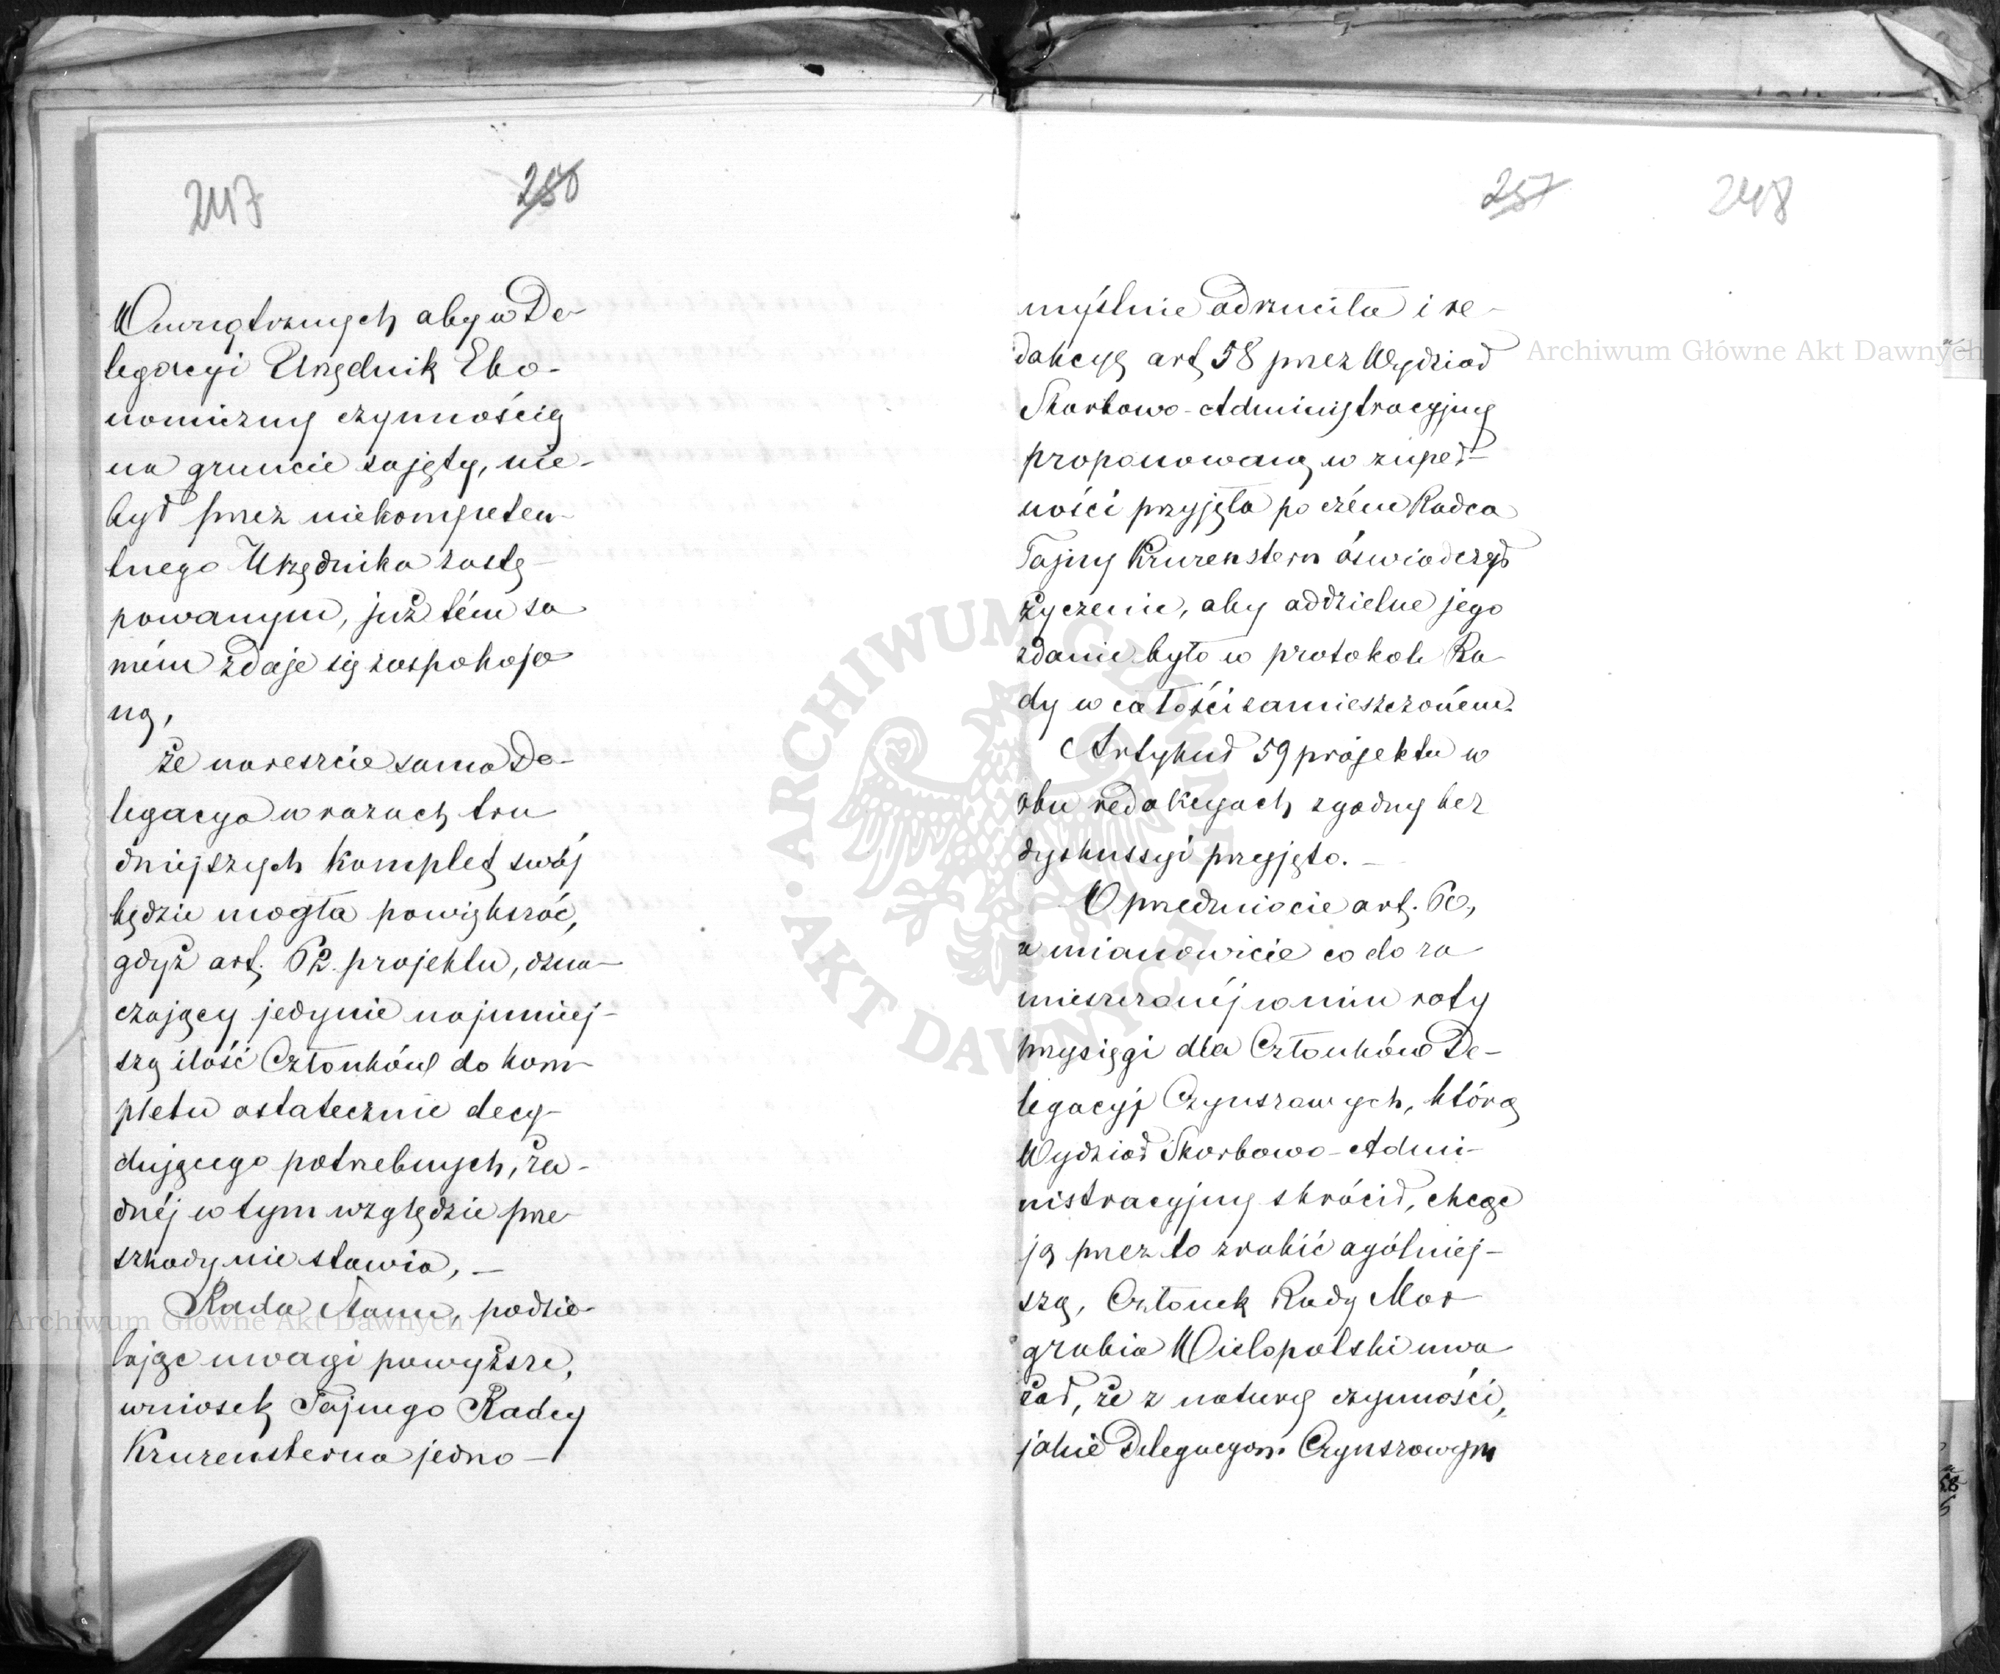 247
256
Wewnętrznych aby w De-
legacyi Urzędnik Eko-
nomiczny czynnością
na gruncie zajęty, nie-
był przez niekompeten-
tnego Urzędnika zastę-
powanym, już tém sa
mém zdaje się zaspokojo
ną,
że nareszcie sama De-
legacya w razach tru
dniejszych komplet swój
będzie mogła powiększać,
gdyż art. 62 projektu, ozna-
czający jedynie najmniej-
szą ilość Członków do kom-
pletu ostatecznie decy-
dującego potrzebnych, ża-
dnéj w tym względzie prze-
szkody nie stawia, —
Rada Stanu, podzie-
lając uwagi powyższe,
wniosek Tajnego Radcy
Kruzensterna jedno-
257
248
myślnie odrzuciła i re-
dakcyę art 58 przez Wydział
Skarbowo-Administracyjny
proponowaną w zupeł-
ności przyjęła po czém Radca
Tajny Kruzenstern oświadczył
życzenie, aby oddzielne jego
zdanie było w protokole Ra-
dy w całości zamieszczoném.
Artykuł 59 projektu w
obu redakcyach zgodny bez
dyskussyi przyjęto. —
O przedmiocie art. 60,
a mianowicie co do za
mieszczonéj w nim roty
przysięgi dla Członków De-
legacyj Czynszowych, którą
Wydział Skarbowo-Admi-
nistracyjny skrócił, chcąc
ją przez to zrobić ogólniej-
szą, Członek Rady Mar
grabia Wielopolski uwa
żał, że z natury czynności,
jakie Delegacyom Czynszowym
Archiwum Główne Akt Dawnych
Archiwum Główne Akt Dawnych
ARCHIWUM GŁÓWNE AKT DAWNYCH